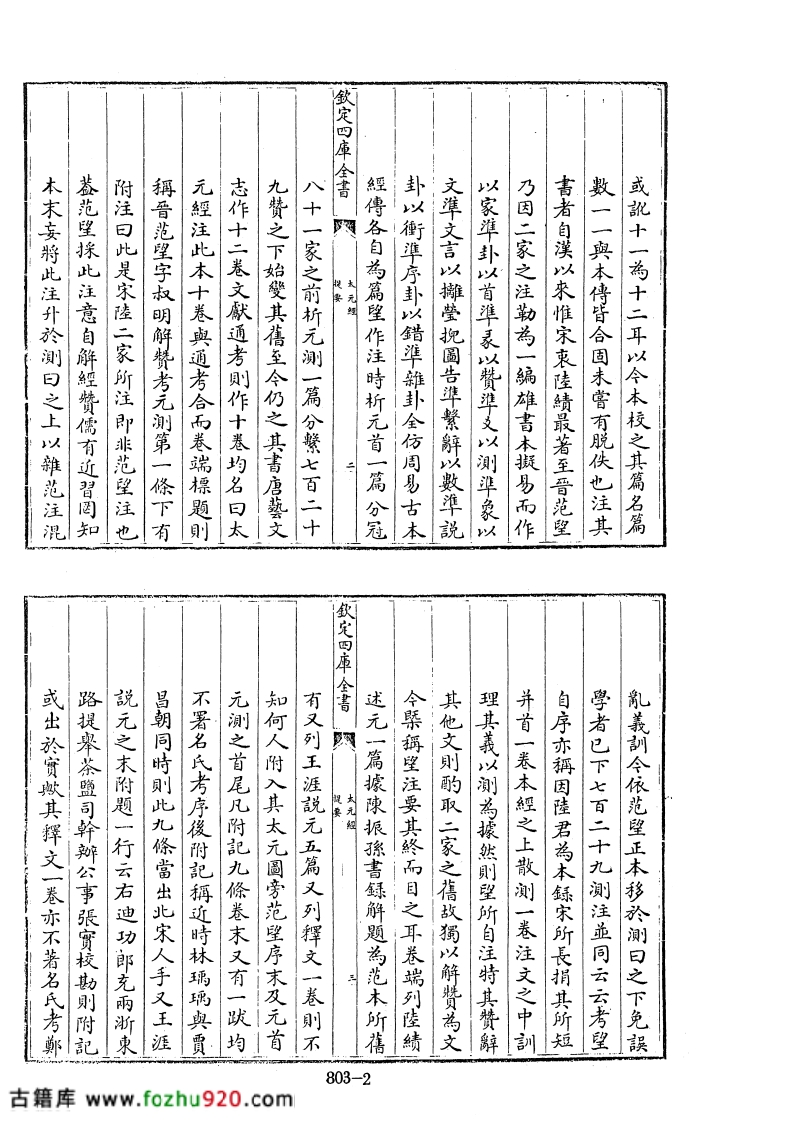 或訛十一為十二耳以今本校之其篇名篇
數一一與本傳皆合固未嘗有脫佚也注其
書者自漢以來惟宋衷陸績最著至晉范望
乃因二家之注勒為一編雄書本擬易而作
以家準卦以首準彖以贊準爻以測準象以
文準文言以攡瑩掜圖告準繫辭以數準説
卦以衝準序卦以錯準雜卦全仿周易古本
經傳各自為篇望作注時析元首一篇分冠
欽定四庫全書
太元經
提要
二
八十一家之前析元測一篇分繫七百二十
九贊之下始變其舊至今仍之其書唐藝文
志作十二卷文獻通考則作十卷均名曰太
元經注此本十卷與通考合而卷端標題則
稱晉范望字叔明解贊考元測第一條下有
附注曰此是宋陸二家所注即非范望注也
葢范望採此注意自解經贊儒有近習罔知
本末妄將此注升於測曰之上以雜范注混
亂義訓今依范望正本移於測曰之下免誤
學者已下七百二十九測注並同云云考望
自序亦稱因陸君為本録宋所長捐其所短
并首一卷本經之上散測一卷注文之中訓
理其義以測為據然則望所自注特其贊辭
其他文則酌取二家之舊故獨以解贊為文
今槩稱望注要其終而目之耳卷端列陸績
述元一篇據陳振孫書録解題為范本所舊
欽定四庫全書
太元經
提要
三
有又列王涯説元五篇又列釋文一卷則不
知何人附入其太元圖旁范望序末及元首
元測之首尾凡附記九條卷末又有一跋均
不署名氏考序後附記稱近時林瑀瑀與賈
昌朝同時則此九條當出北宋人手又王涯
説元之末附題一行云右迪功郎充兩浙東
路提舉茶鹽司幹辦公事張實校勘則附記
或出於實歟其釋文一卷亦不著名氏考鄭
803-2
古籍库 www.fozhu920.com